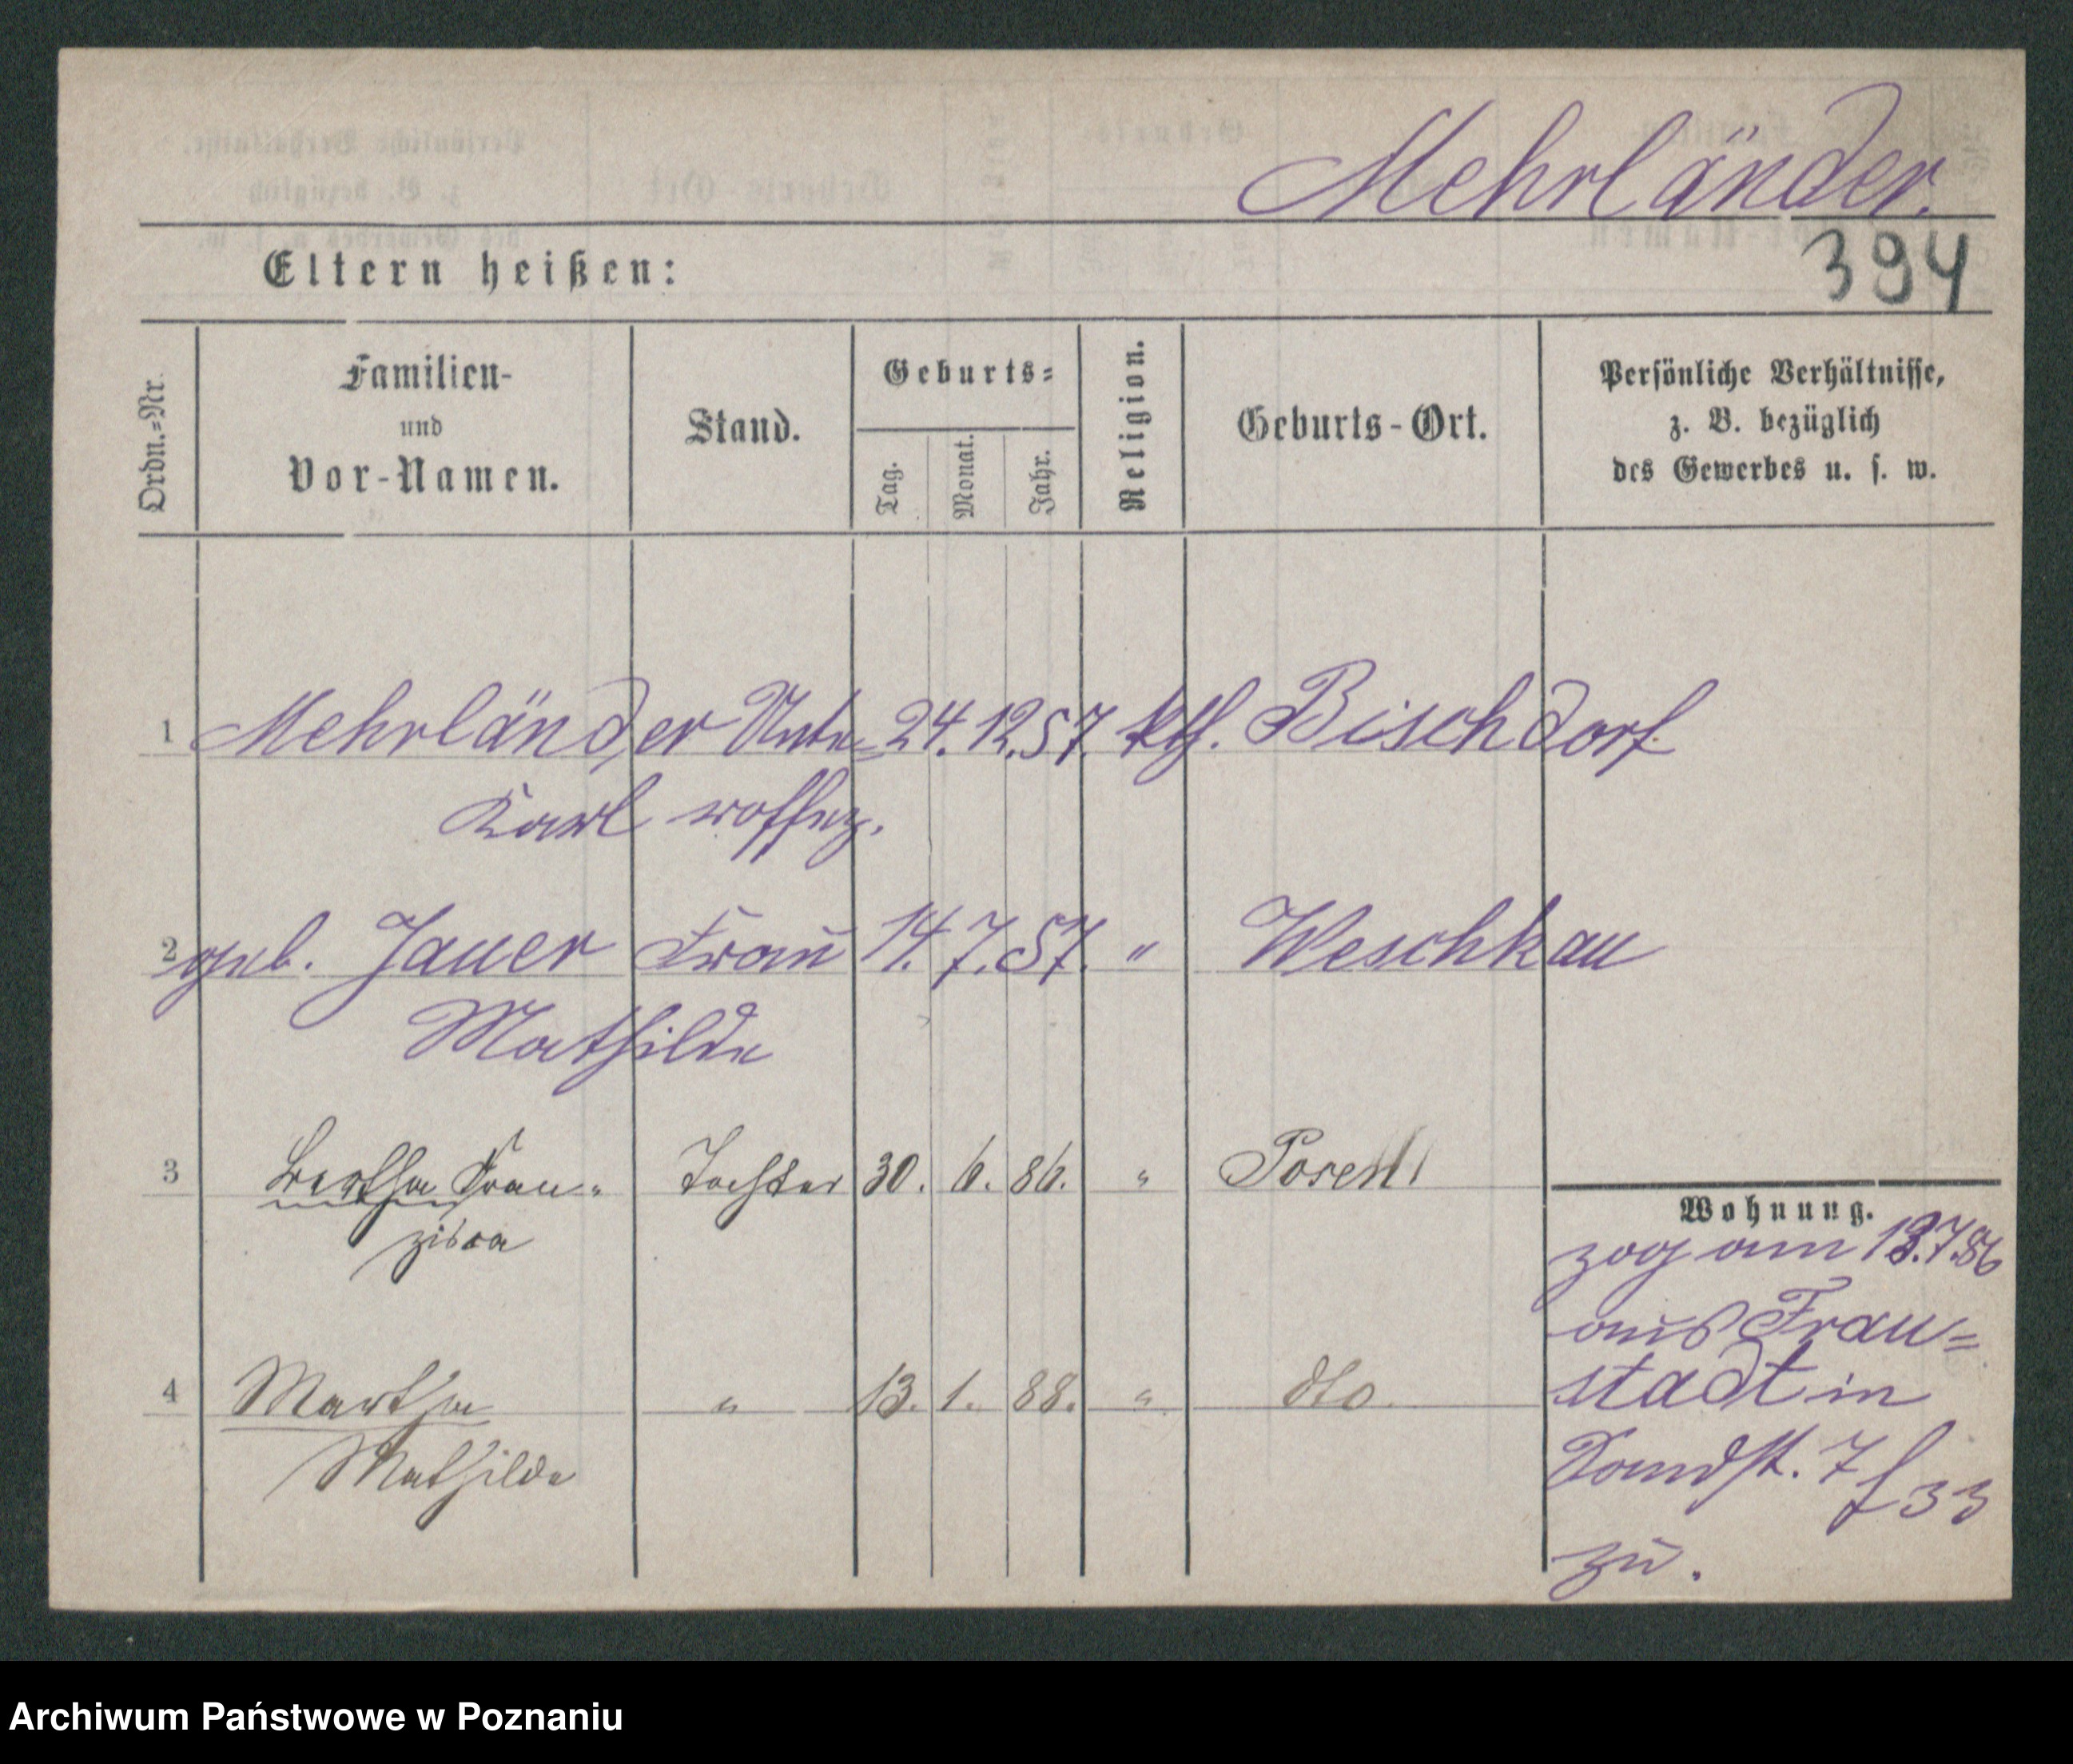 Mehrländer.
394
Eltern heißen:
Ordn.=Nr.
Familien-
und
Vor-Namen.
Stand.
Geburts=
Tag.
Monat.
Jahr.
Religion.
Geburts-Ort.
Persönliche Verhältnisse,
z. B. bezüglich
des Gewerbes u. s. w.
1 Mehrländer Unter= 24. 12. 57. kth. Bischdorf
Karl roffiz.
2 geb. Jauer Frau 14. 7. 57. " Weschkau
Mathilde
3 Bertha Fran- Tochter 30. 6. 86. " Posen
ziska
4 Martha " 13. 1. 88. " dto.
Mathilde
Wohnung.
zog am 13.7.86
aus Frau=
stadt in
Sandst. 7
f 33
zu.
Archiwum Państwowe w Poznaniu